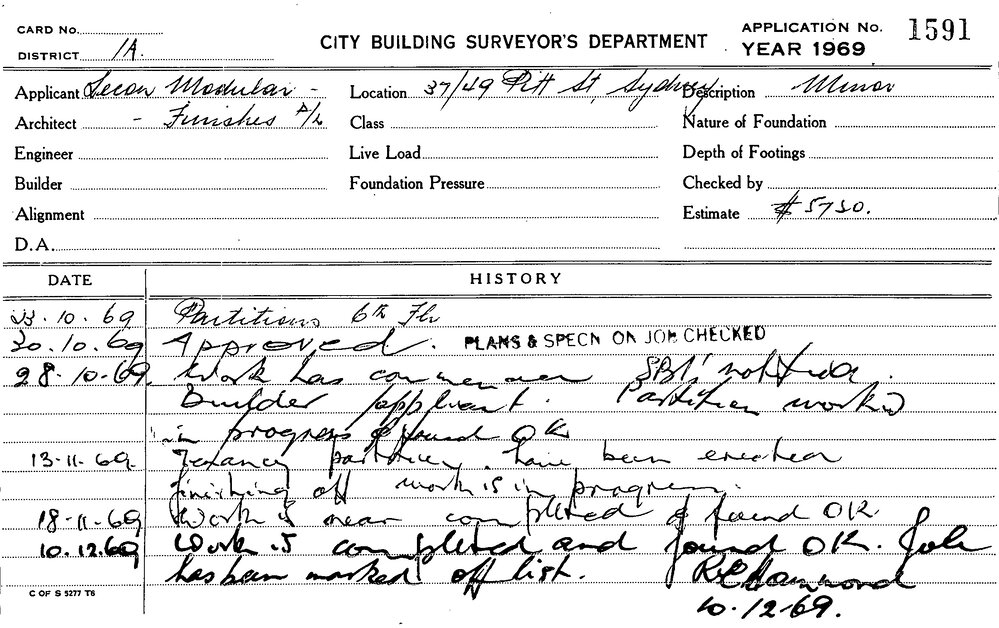 CARD No.
DISTRICT 1A.
CITY BUILDING SURVEYOR'S DEPARTMENT
APPLICATION No. 1591
YEAR 1969
Applicant Secon Modular - Location 37/49 Pitt St, Sydney Description Minor
Architect - Finishes P/L Class Nature of Foundation
Engineer Live Load Depth of Footings
Builder Foundation Pressure Checked by
Alignment Estimate $5750.
D.A.
DATE HISTORY
10. 69 Partitions 6th Flr
10. 69 Approved. PLANS & SPECN ON JOB CHECKED
28. 10. 69 Work has commenced notified.
Builder applicant. Partition work is
in progress & found OK
13.11.69. Tenancy partitions have been erected
finishing off work is in progress.
18.11.69 Work is near completed & found OK.
10.12.69 Work is completed and found OK. Job
has been marked off list. Hammond
C OF S 5277 T6 10.12.69.